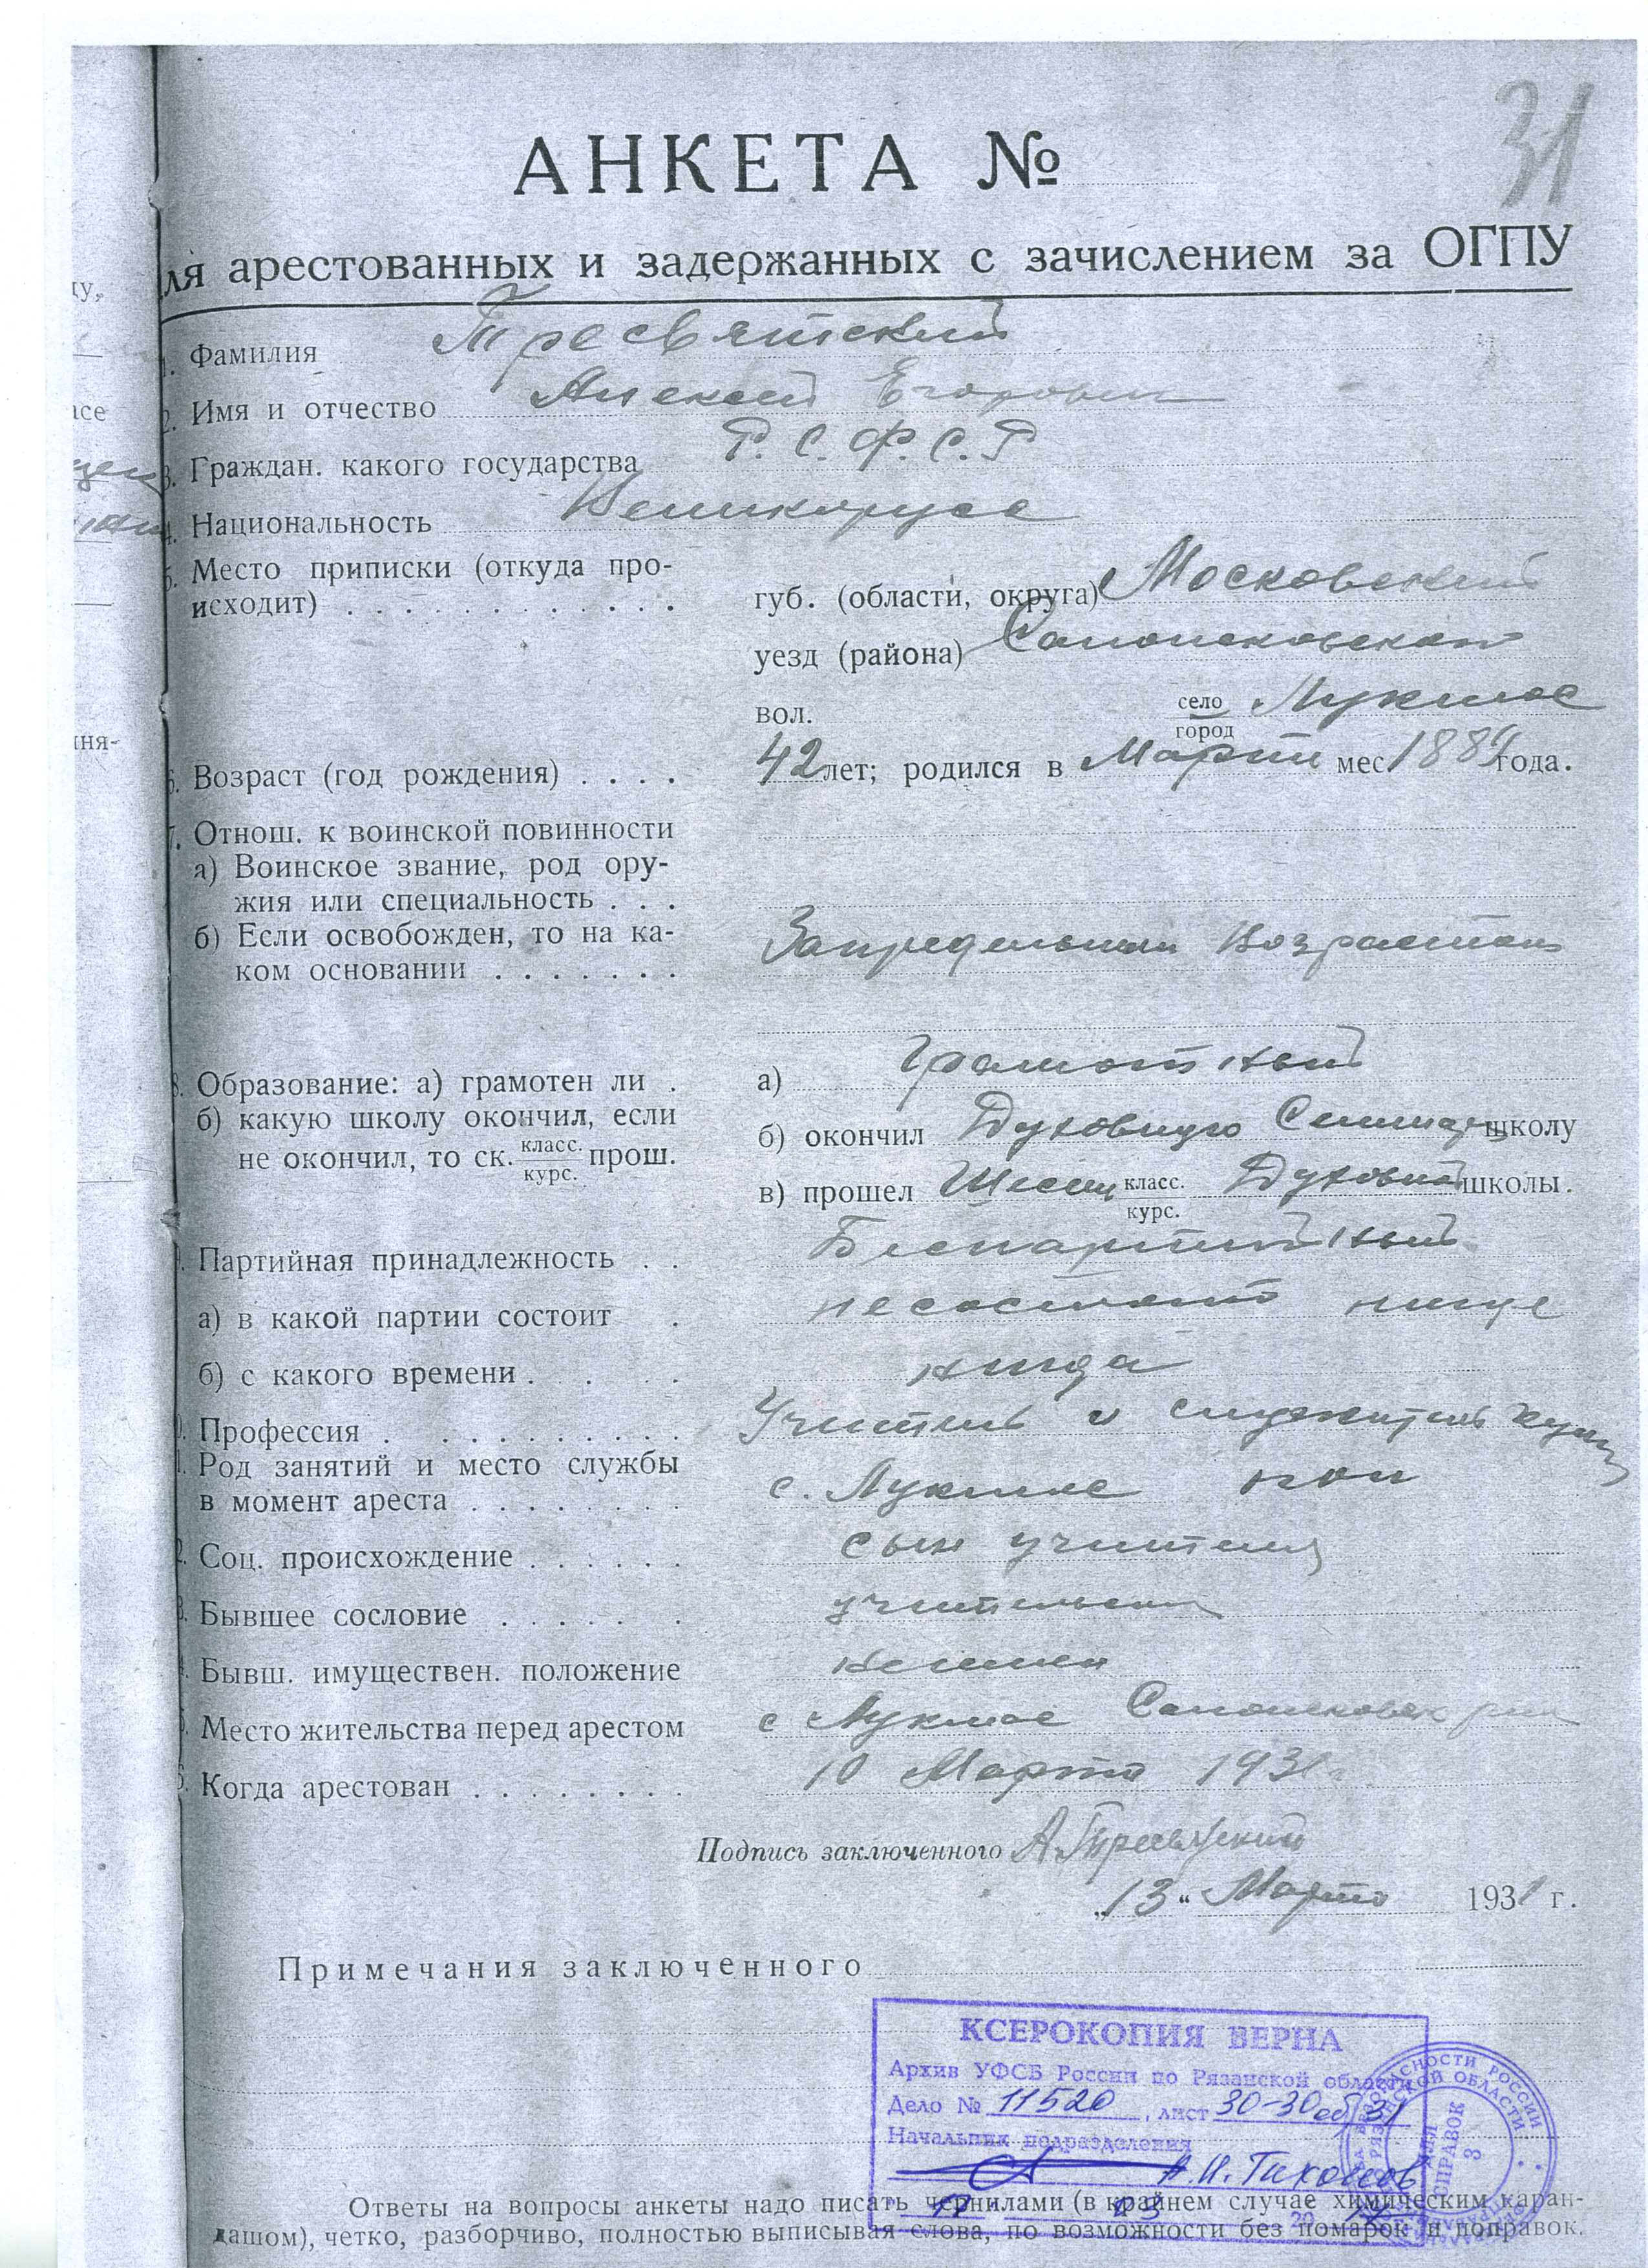 31
АНКЕТА №
ля арестованных и задержанных с зачислением за ОГПУ
1. Фамилия Тресвятский
2. Имя и отчество Алексей Егорович
3. Граждан. какого государства Р.С.Ф.С.Р
4. Национальность Великорусс
5. Место приписки (откуда про-
исходит) . . . . . . . . . . . . губ. (области, округа) Московский
уезд (района) Сапожковский
вол. село Лукмос
город
6. Возраст (год рождения) . . . . 42 лет; родился в Марте мес 1889 года.
7. Отнош. к воинской повинности
а) Воинское звание, род ору-
жия или специальность . . .
б) Если освобожден, то на ка-
ком основании . . . . . . . Запредельным возрастом
8. Образование: а) грамотен ли . а) Грамотный
б) какую школу окончил, если
не окончил, то ск. класс. курс. прош. б) окончил Духовную Семинар школу
в) прошел Шесть класс. курс. Духовной школы.
9. Партийная принадлежность . . Беспартийный
а) в какой партии состоит . несостоит нигде
б) с какого времени . . . .
Профессия . . . . . . . . . . Учитель и служитель культа
Род занятий и место службы
в момент ареста . . . . . . . . с. Лукмос поп
Соц. происхождение . . . . . . сын учителя
Бывшее сословие . . . . . .
Бывш. имуществен. положение
Место жительства перед арестом с Лукмос Сапожковск рай
Когда арестован . . . . . . . . 10 Марта 1931 г.
Подпись заключенного А.Тресвятский
„13“ Марта 1931 г.
Примечания заключенного
КСЕРОКОПИЯ ВЕРНА
Архив УФСБ России по Рязанской области
Дело № 11520, лист 30-30об, 31
Начальник подразделения
А.И. Тихонов
ДЛЯ
СПРАВОК
3
Ответы на вопросы анкеты надо писать чернилами (в крайнем случае химическим каран-
дашом), четко, разборчиво, полностью выписывая слова, по возможности без помарок и поправок.